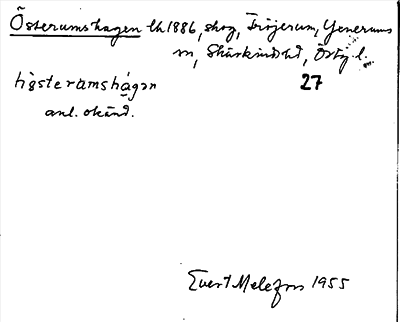 Österumshagen Ek1886, skog, Fröjerum, Yxnerums
sn, Skärkinds hd, Östg. l.
27
hı̀ste rəmshágən
anl. okänd.
Evert Melefors 1955